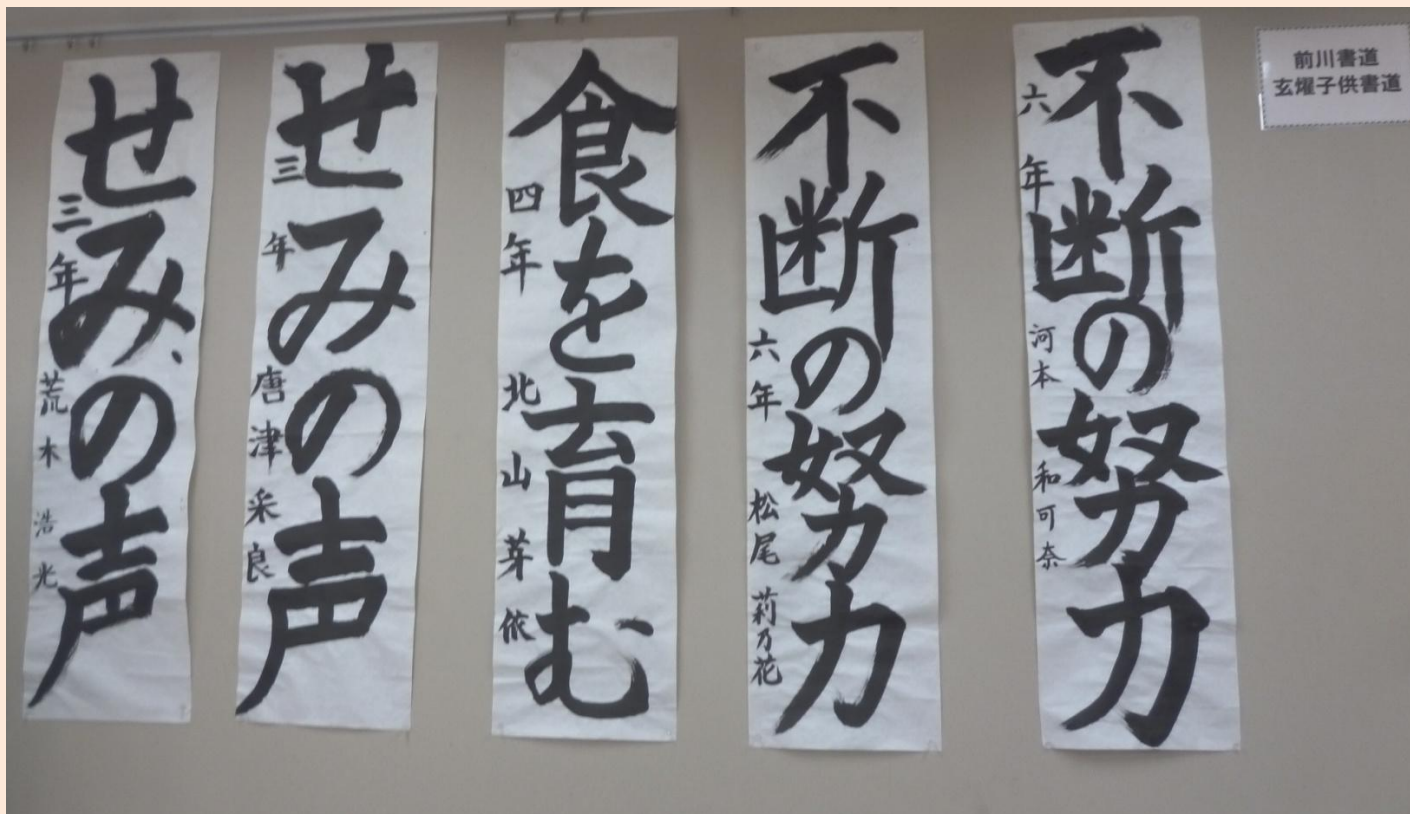 前川書道
玄燿子供書道
不断の努力
六年 河本 和可奈
不断の努力
六年 松尾 莉乃花
食を育む
四年 北山 芽依
せみの声
三年 唐津采良
せみの声
三年 荒木 浩光